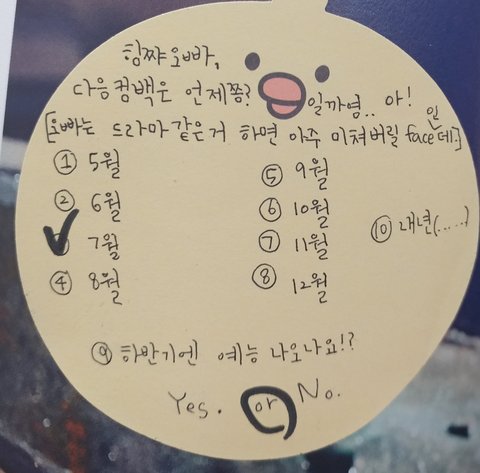 힘쨔오빠,
다음컴백은 언제쯤? 일까염.. 아!
[오빠는 드라마같은거 하면 아주 미쳐버릴 face인데.]
① 5월 ⑤ 9월
② 6월 ⑥ 10월
✓ 7월 ⑦ 11월 ⑩ 내년(.....)
④ 8월 ⑧ 12월
⑨ 하반기엔 예능 나오나요!?
Yes. or No.